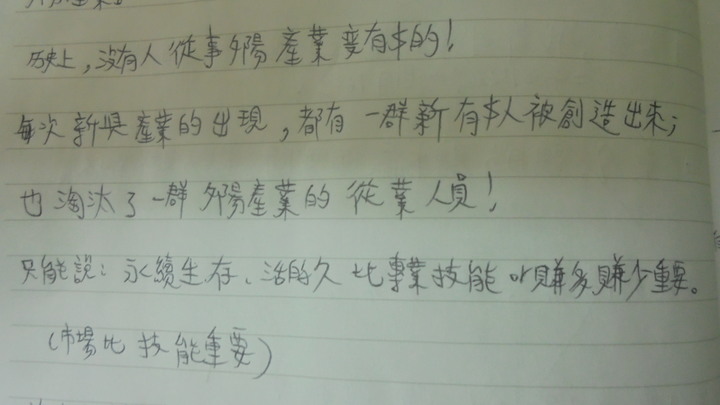 歷史上,沒有人從事夕陽產業變有錢的!
每次新興產業的出現,都有一群新有錢人被創造出來;
也淘汰了一群夕陽產業的從業人員!
只能說:永續生存、活的久比專業技能 or 賺多賺少重要。
(市場比技能重要)